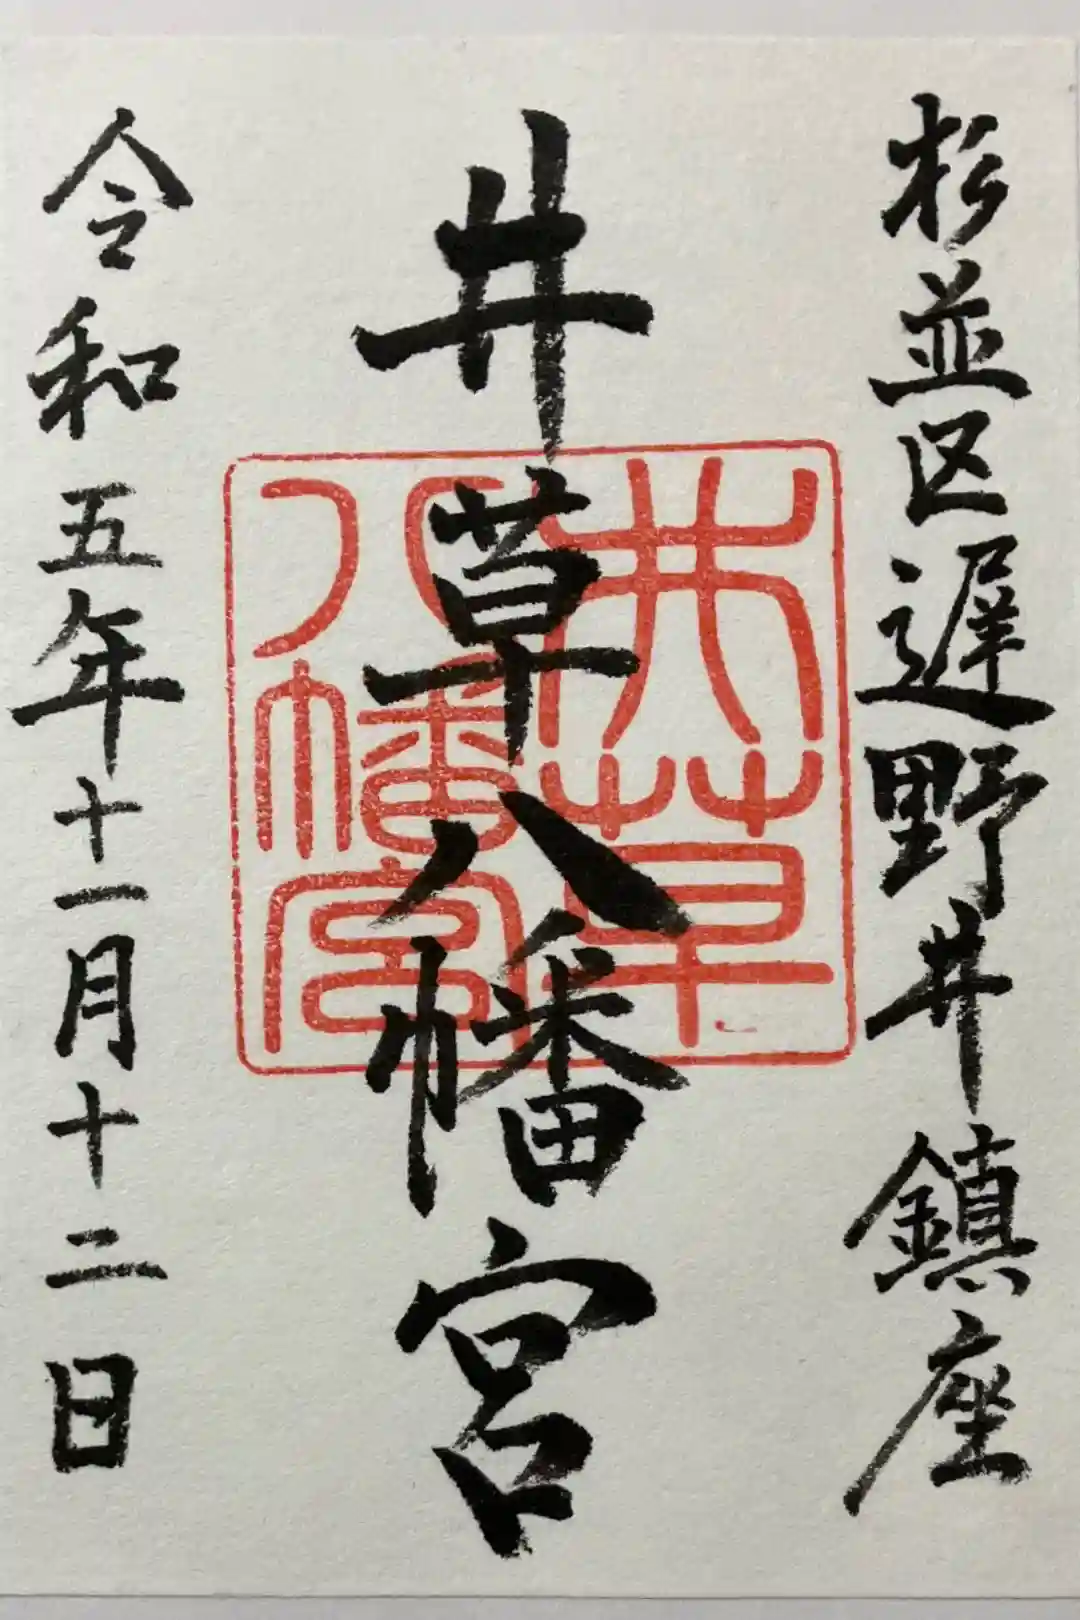 杉並区遅野井鎮座
井草八幡宮
井草八幡宮
令和五年十一月十二日